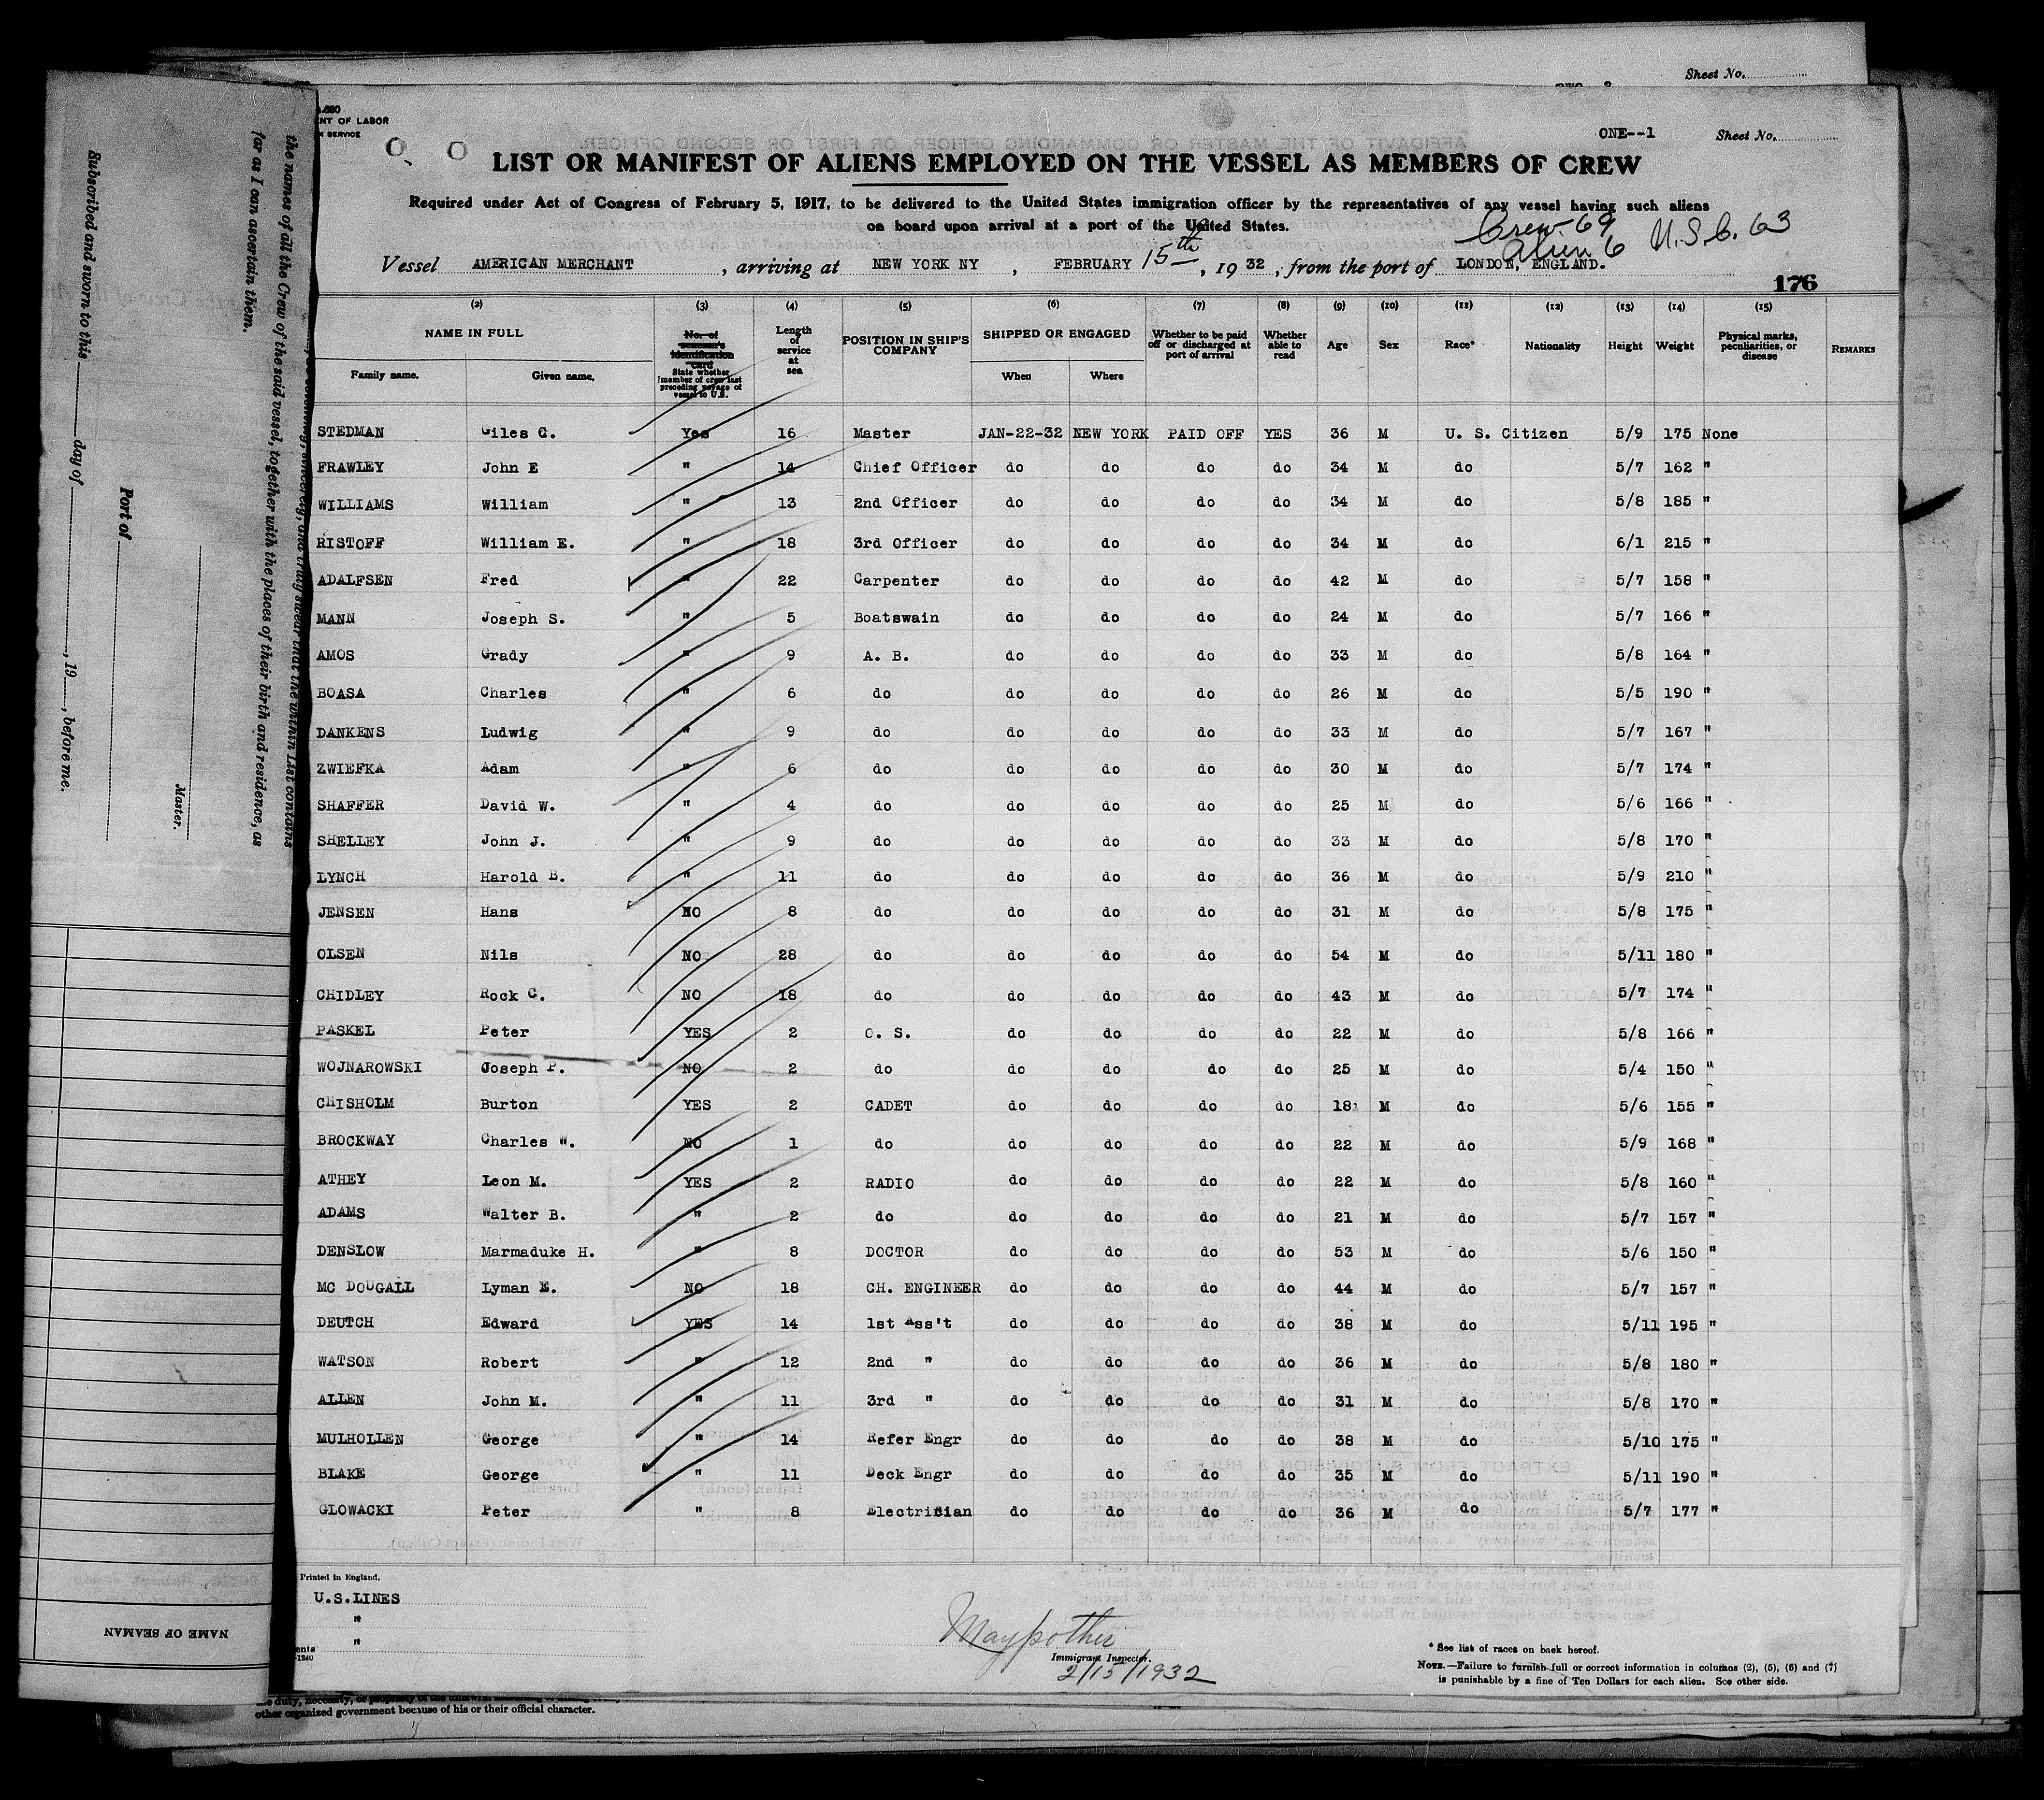 Sheet No.
.680
ENT OF LABOR
N SERVICE
ONE--1 Sheet No.
LIST OR MANIFEST OF ALIENS EMPLOYED ON THE VESSEL AS MEMBERS OF CREW
Required under Act of Congress of February 5, 1917, to be delivered to the United States immigration officer by the representatives of any vessel having such aliens
on board upon arrival at a port of the United States.
Crew 69
Alien 6 U.S.C. 63
Vessel AMERICAN MERCHANT, arriving at NEW YORK NY, FEBRUARY 15th, 1932, from the port of LONDON, ENGLAND.
176
(2) (3) (4) (5) (6) (7) (8) (9) (10) (11) (12) (13) (14) (15)
NAME IN FULL Family name. Given name. No. of seaman's identification card State whether member of crew last preceding voyage of vessel to U.S. Length of service at sea POSITION IN SHIP'S COMPANY SHIPPED OR ENGAGED When Where Whether to be paid off or discharged at port of arrival Whether able to read Age Sex Race* Nationality Height Weight Physical marks, peculiarities, or disease REMARKS
STEDMAN Giles C. Yes 16 Master JAN-22-32 NEW YORK PAID OFF YES 36 M U. S. Citizen 5/9 175 None
FRAWLEY John E " 14 Chief Officer do do do do 34 M do 5/7 162 "
WILLIAMS William " 13 2nd Officer do do do do 34 M do 5/8 185 "
RISTOFF William E. " 18 3rd Officer do do do do 34 M do 6/1 215 "
ADALFSEN Fred " 22 Carpenter do do do do 42 M do 5/7 158 "
MANN Joseph S. " 5 Boatswain do do do do 24 M do 5/7 166 "
AMOS Grady " 9 A. B. do do do do 33 M do 5/8 164 "
BOASA Charles " 6 do do do do do 26 M do 5/5 190 "
DANKENS Ludwig " 9 do do do do do 33 M do 5/7 167 "
ZWIEFKA Adam " 6 do do do do do 30 M do 5/7 174 "
SHAFFER David W. " 4 do do do do do 25 M do 5/6 166 "
SHELLEY John J. " 9 do do do do do 33 M do 5/8 170 "
LYNCH Harold B. " 11 do do do do do 36 M do 5/9 210 "
JENSEN Hans NO 8 do do do do do 31 M do 5/8 175 "
OLSEN Nils NO 28 do do do do do 54 M do 5/11 180 "
CHIDLEY Rock C. NO 18 do do do do do 43 M do 5/7 174 "
PASKEL Peter YES 2 O. S. do do do do 22 M do 5/8 166 "
WOJNAROWSKI Joseph P. NO 2 do do do do do 25 M do 5/4 150 "
CHISHOLM Burton YES 2 CADET do do do do 18 M do 5/6 155 "
BROCKWAY Charles W. NO 1 do do do do do 22 M do 5/9 168 "
ATHEY Leon M. YES 2 RADIO do do do do 22 M do 5/8 160 "
ADAMS Walter B. " 2 do do do do do 21 M do 5/7 157 "
DENSLOW Marmaduke H. " 8 DOCTOR do do do do 53 M do 5/6 150 "
MC DOUGALL Lyman E. NO 18 CH. ENGINEER do do do do 44 M do 5/7 157 "
DEUTCH Edward YES 14 1st Ass't do do do do 38 M do 5/11 195 "
WATSON Robert " 12 2nd " do do do do 36 M do 5/8 180 "
ALLEN John M. " 11 3rd " do do do do 31 M do 5/8 170 "
MULHOLLEN George " 14 Refer Engr do do do do 38 M do 5/10 175 "
BLAKE George " 11 Deck Engr do do do do 35 M do 5/11 190 "
GLOWACKI Peter " 8 Electrician do do do do 36 M do 5/7 177 "
Printed in England.
U.S.LINES
"
"
ents
-1240
Maypother
Immigrant Inspector.
2/15/1932
* See list of races on back hereof.
NOTE.—Failure to furnish full or correct information in columns (2), (5), (6) and (7)
is punishable by a fine of Ten Dollars for each alien. See other side.
other organized government because of his or their official character.
the names of all the Crew of the said vessel, together with the places of their birth and residence, as
far as I can ascertain them.
Master.
Port of
Subscribed and sworn to this day of , 19 , before me.
NAME OF SEAMAN